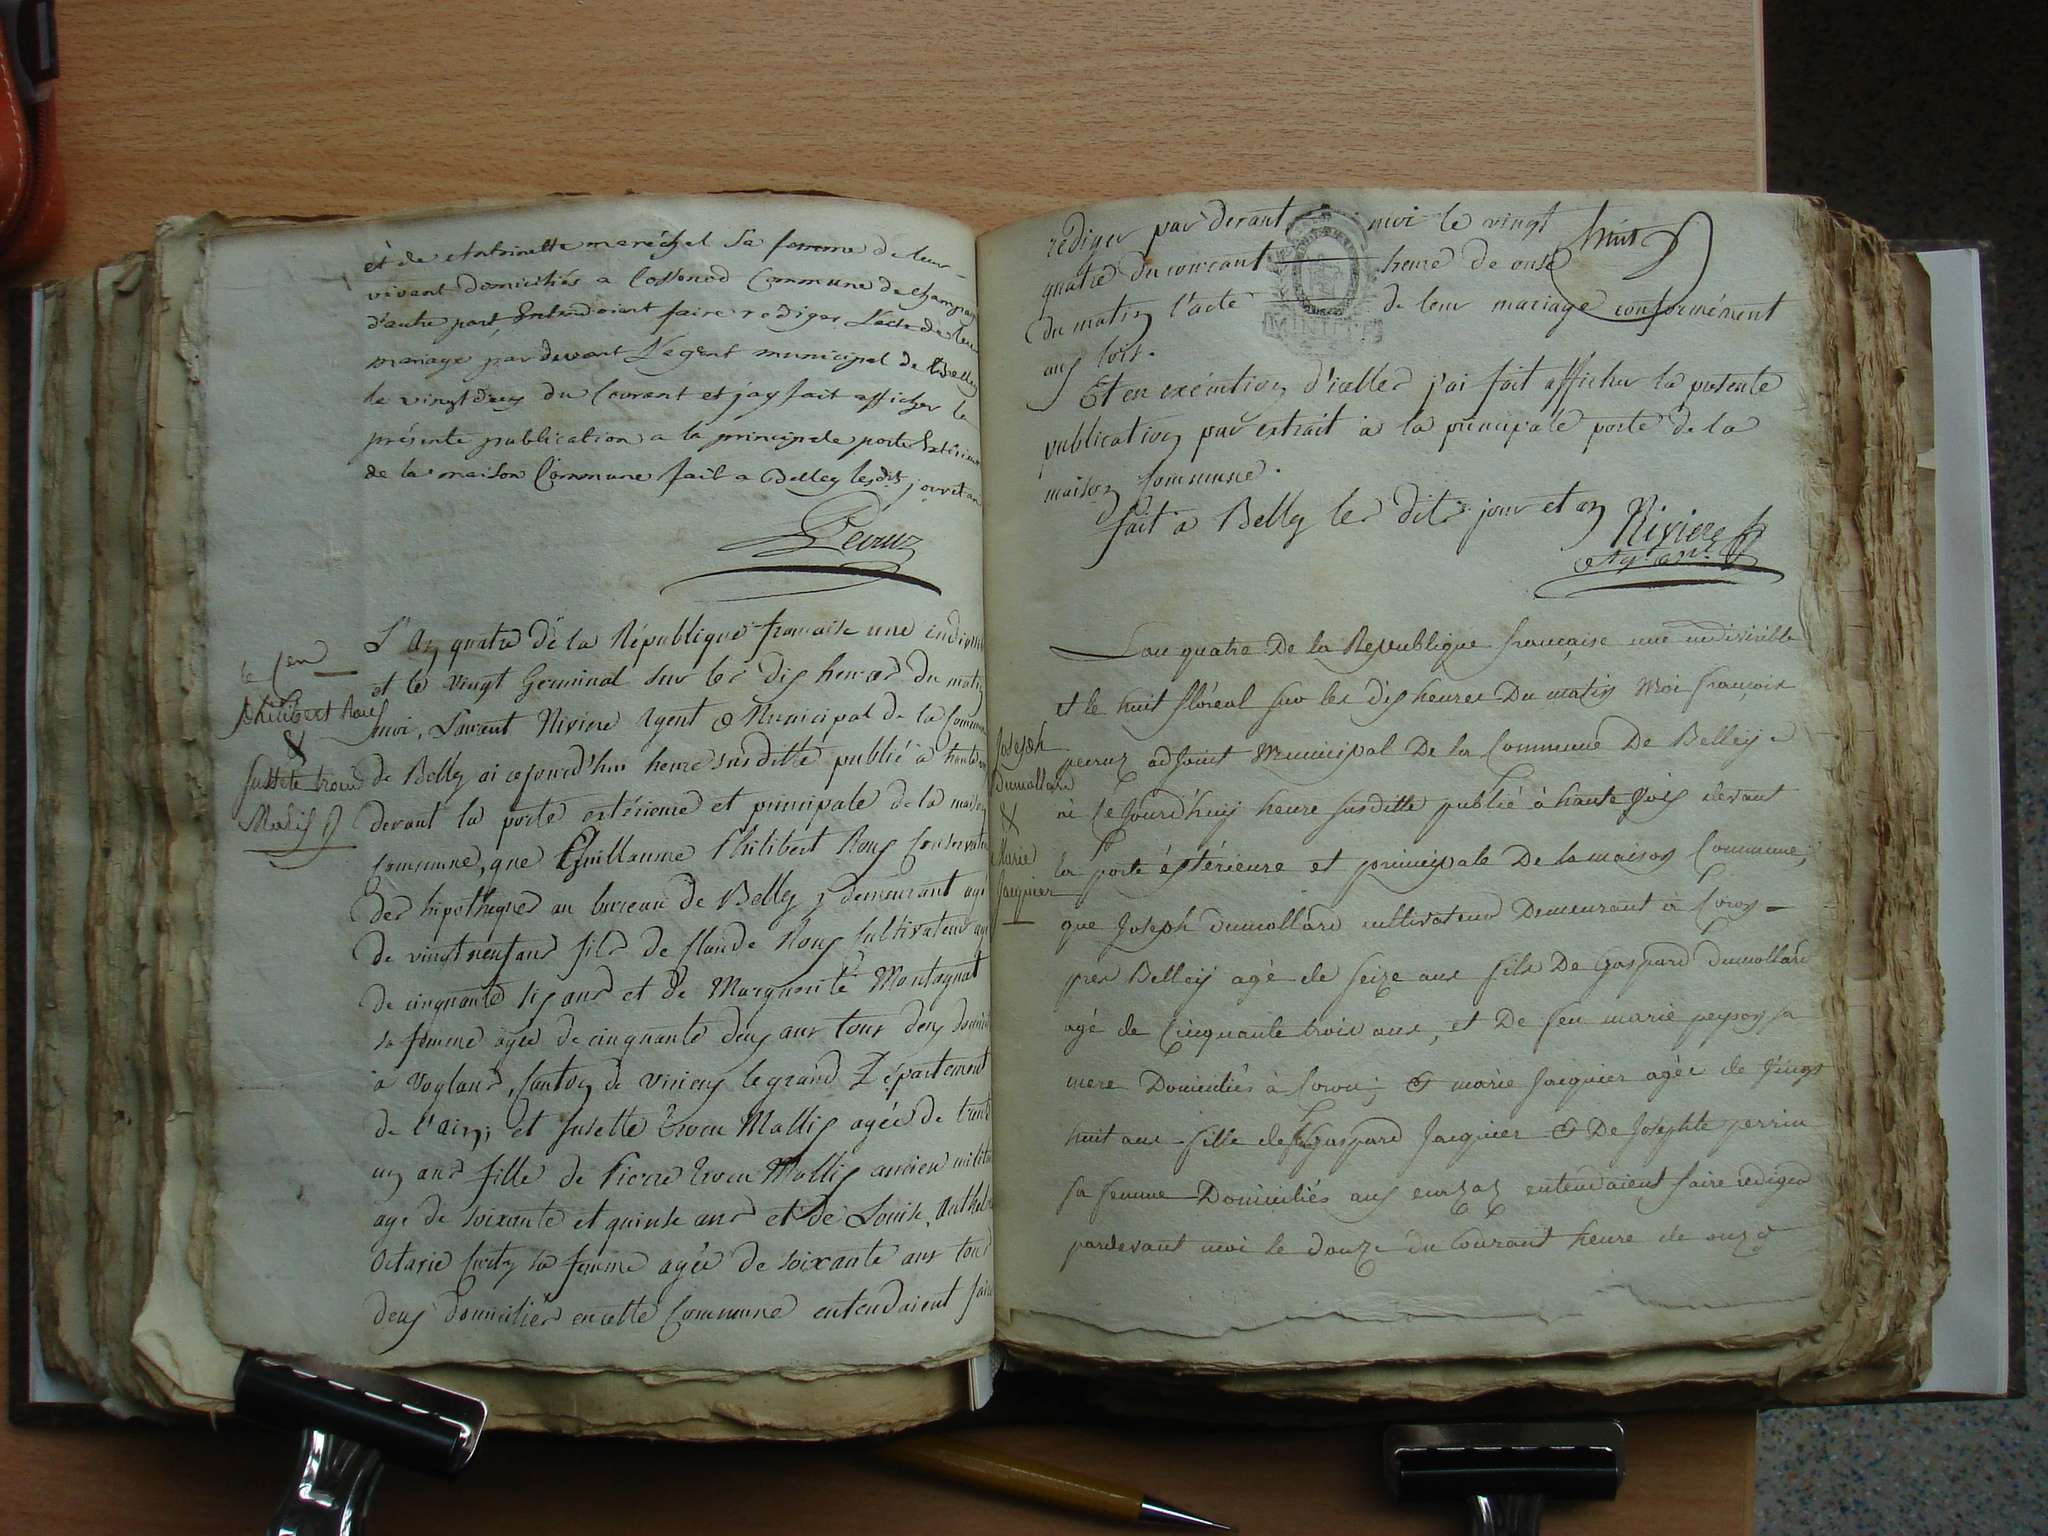 et de Antoinette maréchal sa femme de leur
vivant domiciliés a Cossonod Commune de champag
d'autre part Entendoient faire rediger L'acte de leur
mariage par devant L'agent municipal de Belley
le vingt deux du Courant et j'ay fait afficher la
présente publication a la principale porte Exterieure
de la maison Commune fait a Belley lesdits jour et an
Peyruz
le Cen
philibert Roux
&
Susette
Mallis
L'An quatre de la République francaise une indivisi
et le vingt Germinal sur les dix heures du matin
moi, Laurent Niviere Agent Municipal de la Commune
de Belley ai cejourd'hui heure susditte publié à haute voix
devant la porte extérieure et principale de la maison
Commune, que Guillaume Philibert Roux Conservateur
des hipotheques au bureau de Belley y demeurant agé
de vingt neuf ans fils de Claude Roux Cultivateur agé
de cinquante six ans et de Marguerite Montagnat
sa femme agée de cinquante deux ans tous deux domici
à Vogland, Canton de Virieux le grand Département
de l'ain; et Susette Mallis agée de trente
un ans fille de Pierre Mallis ancien milita
agé de soixante et quinse ans et de Louise Anthel
Octavie sa femme agée de soixante ans tous
deux domiciliés en cette Commune entendaient faire
rediger par devant moi le vingt huit
quatre du courant heure de onse
du matin l'acte de leur mariage conformément
aux loix.
Et en exécution d'icelles j'ai fait afficher la présente
publication par extrait à la principale porte de la
maison Commune.
fait a Belley les dits jour et an Niviere
MINUTE
Joseph
Dumollard
&
Marie
Jacquier
L'an quatre De la Republique francaise une indivisible
et le huit floréal sur les dix heures Du matin Moi françois
peyruz adjoint Municipal De la Commune De Belley
ai Cejourd'huy heure susditte publié à haute voix devant
la porte éxtérieure et principale De la maison Commune,
que Joseph Dumollard cultivateur Demeurant à Coron
pres Belley agé de seize ans fils De Gaspard Dumollard
agé de Cinquante trois ans, et De feu marie peyson sa
mere Domiciliés à Coron; & marie Jacquier agée de vingt
huit ans fille de feu Gaspard Jacquier & De Josephte perrin
sa femme Domiciliés aux entendaient faire rediger
pardevant moi le douze du Courant heure de onze